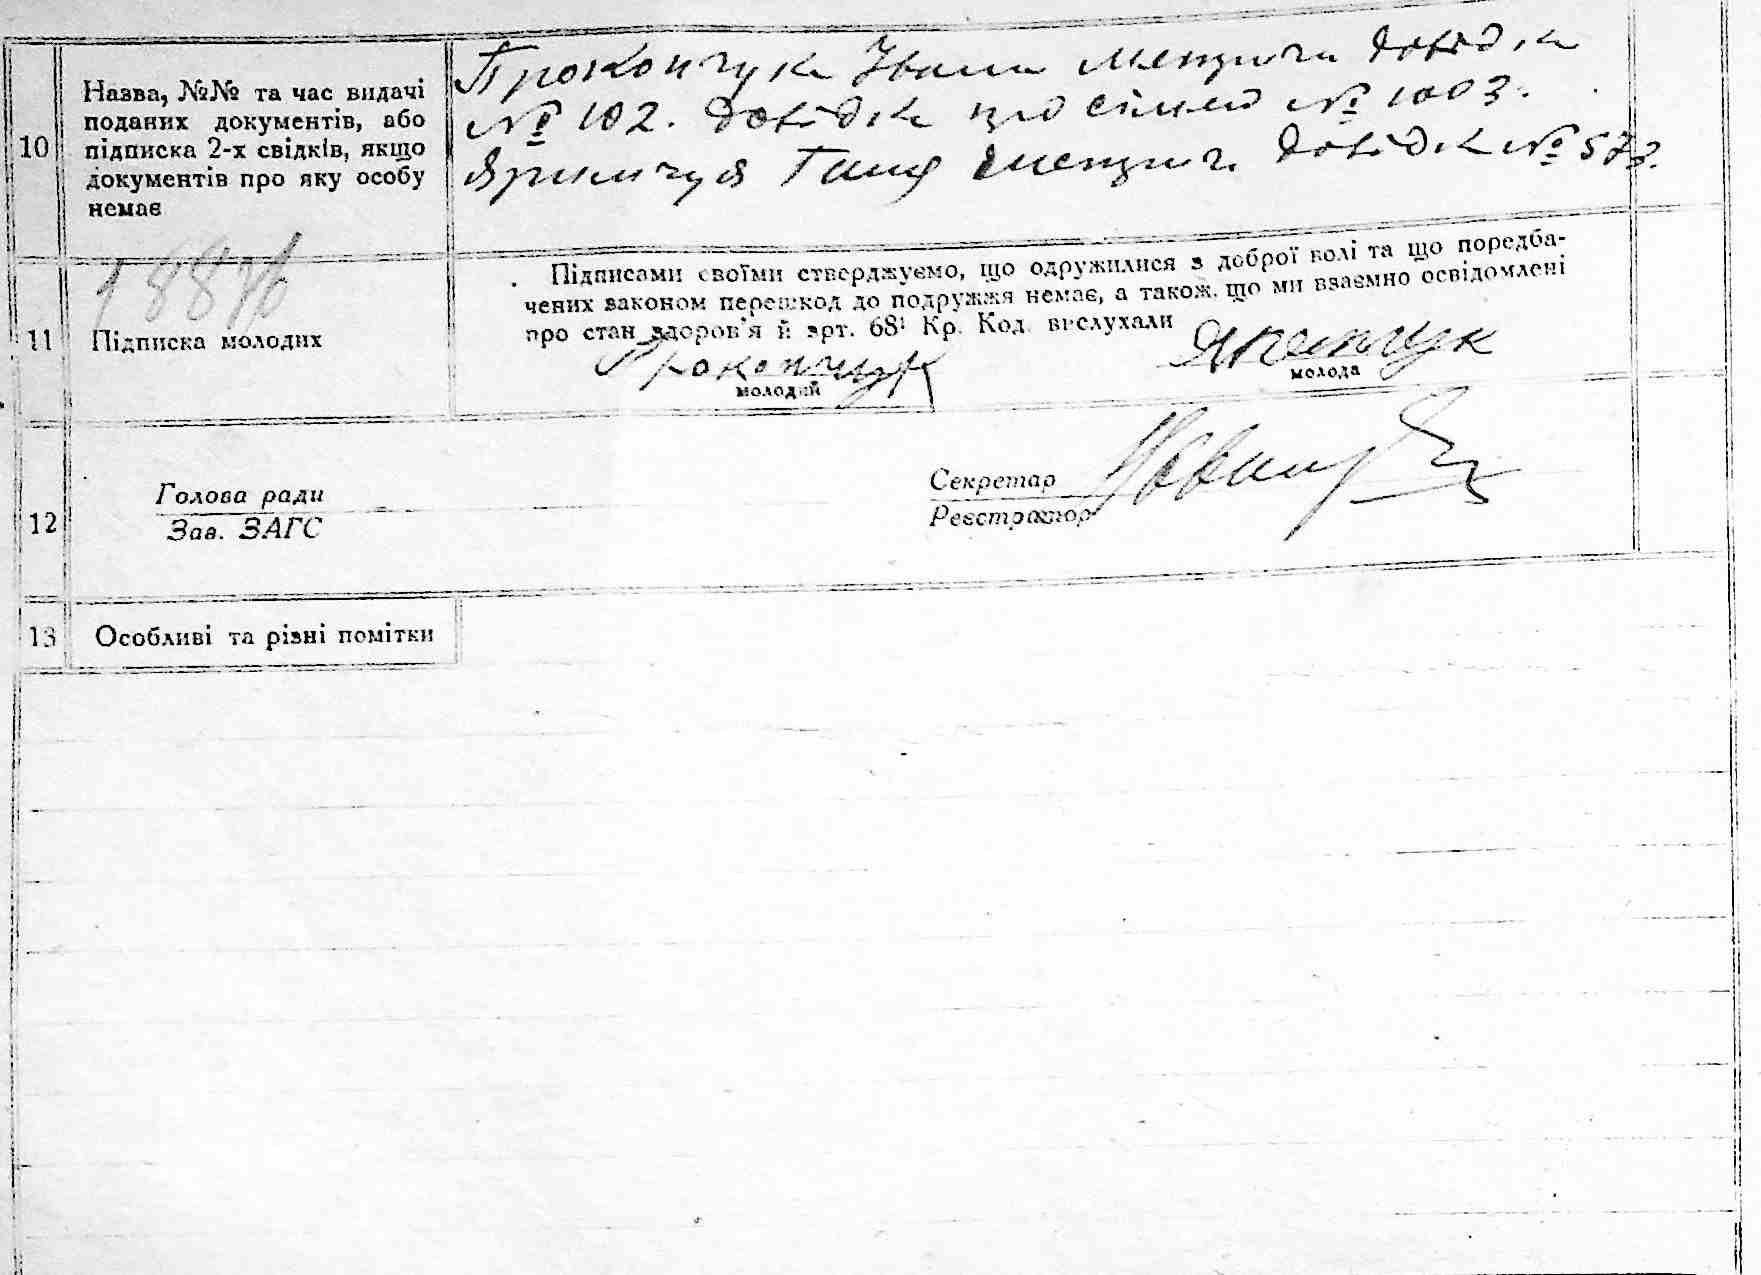 10
Назва, №№ та час видачі
поданих документів, або
підписка 2-х свідків, якщо
документів про яку особу
немає
Прокопчука Івана довідка
№ 102. довідка про сімей № 1003.
Ганя довідка № 573.
11
Підписка молодих
Підписами своїми стверджуємо, що одружилися з доброї волі та що поредба-
чених законом перешкод до подружжя немає, а також, що ми взаємно освідомлені
про стан здоров'я й арт. 68¹ Кр. Код. вислухали
Прокопчук
молодий
молода
12
Голова ради
Зав. ЗАГС
Секретар
Реєстратор
13
Особливі та різні помітки